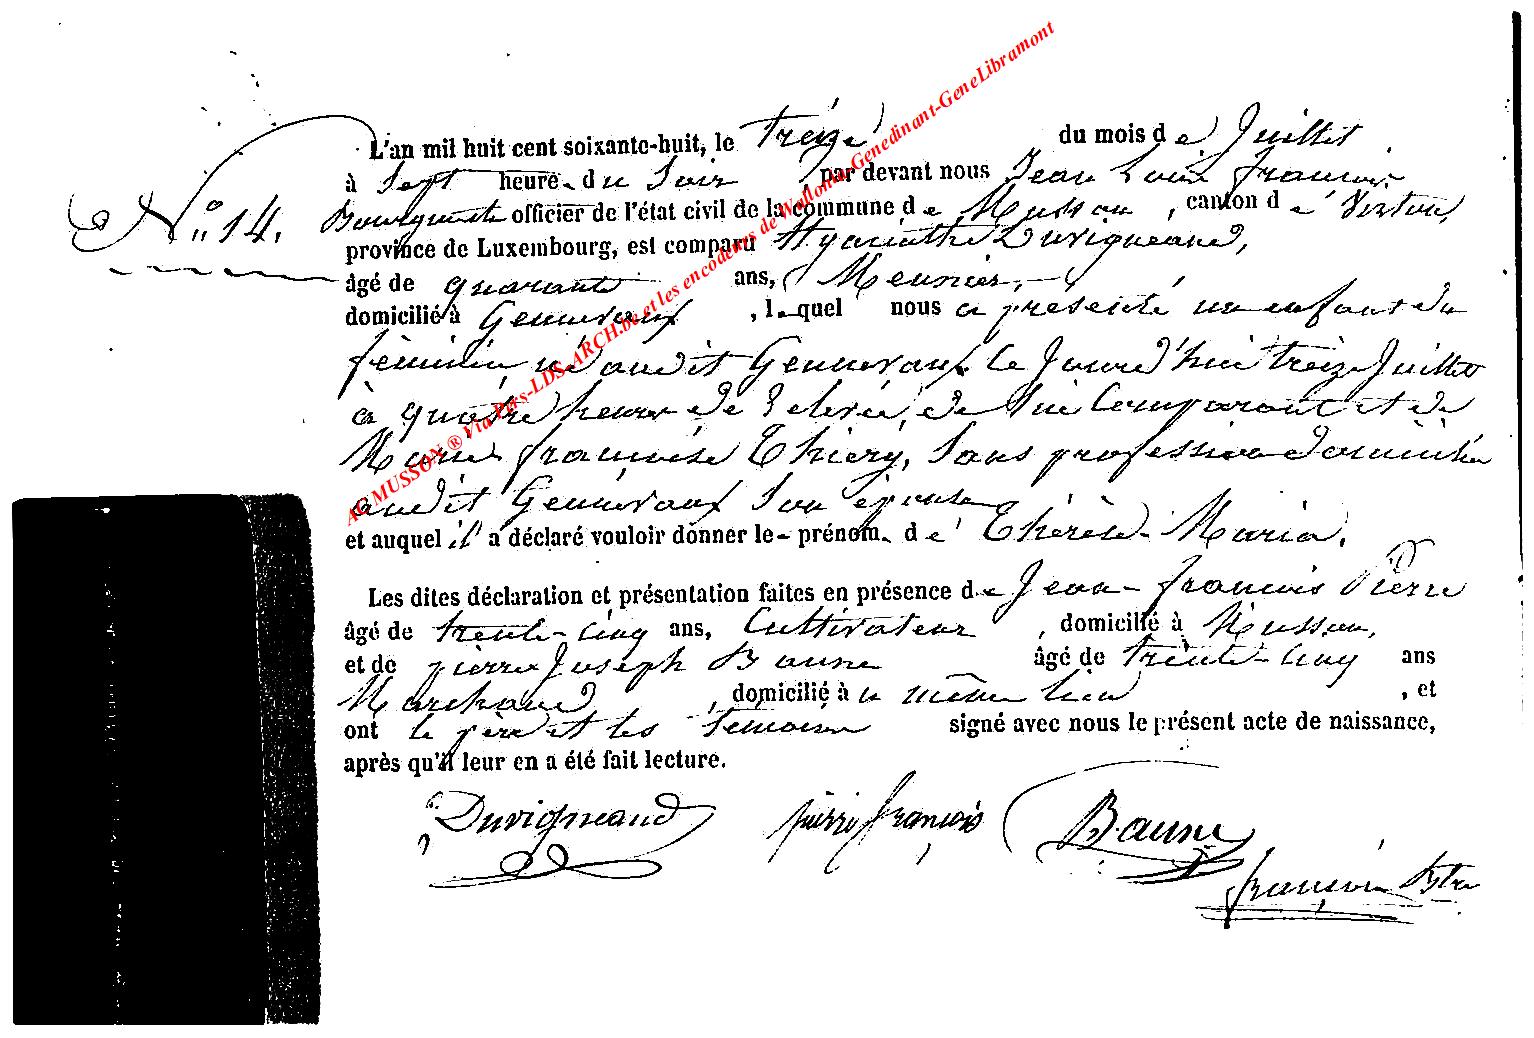 L'an mil huit cent soixante-huit, le treize du mois de Juillet
à Sept heures du Soir, par devant nous Jean Louis François
N° 14. officier de l'état civil de la commune de Musson, canton de Virton,
province de Luxembourg, est comparu Hyacinthe Duvigneaud,
âgé de quarante ans, Meunier,
domicilié à Gennevaux, lequel nous a présenté un enfant du
féminin né audit Gennevaux ce Jourd'hui treize Juillet
à quatre heures de relevée, de lui Comparant et de
Marie françoise Thiery, Sans profession domiciliée
audit Gennevaux Son épouse
et auquel il a déclaré vouloir donner le prénom de Thérèse Maria.
Les dites déclaration et présentation faites en présence de Jean françois Pierre
âgé de trente-cinq ans, Cultivateur, domicilié à Musson,
et de pierre Joseph Baune âgé de trente-cinq ans
Marchand, domicilié à même lieu, et
ont le père et les témoins signé avec nous le présent acte de naissance,
après qu'il leur en a été fait lecture.
Duvigneaud pierre françois Baune
AC MUSSON ® Via Pers-LDS-ARCH.be et les encodeurs de Wallonia-Genedinant-GeneLibramont